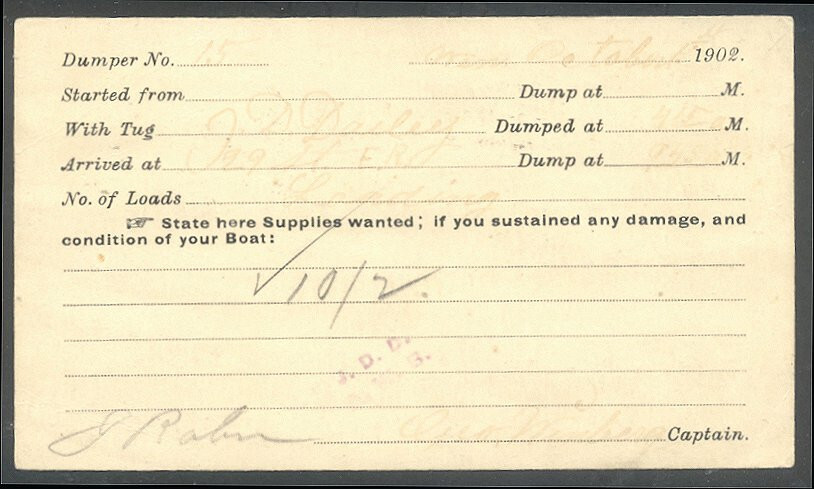 Dumper No. 15 October 1902.
Started from Dump at M.
With Tug J. D. Dailey Dumped at M.
Arrived at 129 St E R Dump at M.
No. of Loads Loading
☞ State here Supplies wanted; if you sustained any damage, and
condition of your Boat:
✓ 10/2.
J. D. D.
Captain.